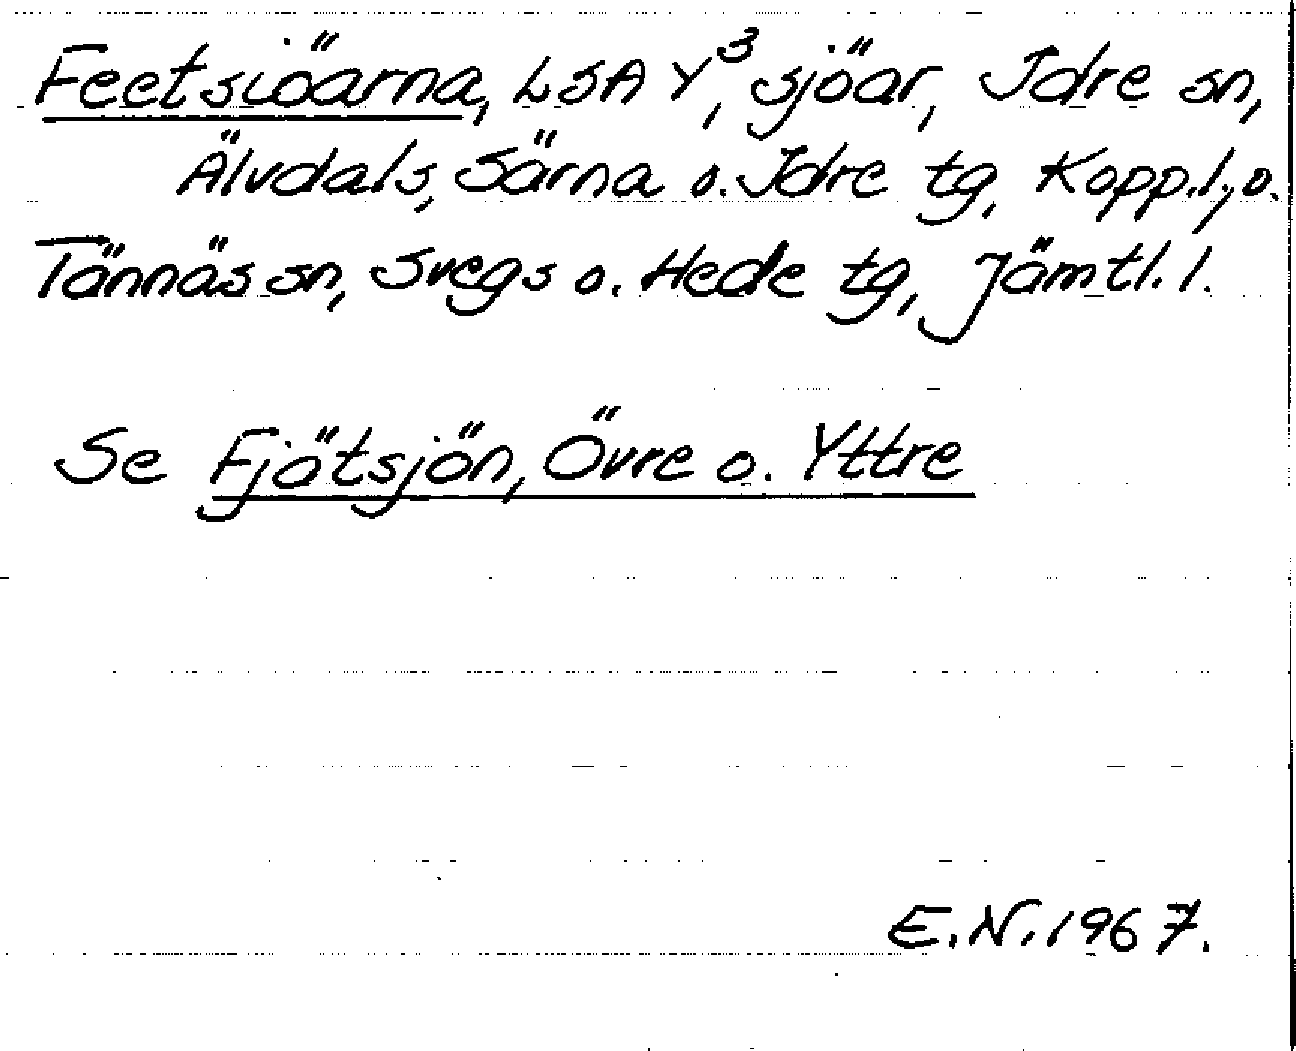 Feetsiöarna, LSA Y³, sjöar, Idre sn,
Älvdals, Särna o. Idre tg, Kopp.l., o.
Tännäs sn, Svegs o. Hede tg, Jämtl. l.
Se Fjötsjön, Övre o. Yttre
E.N. 1967.